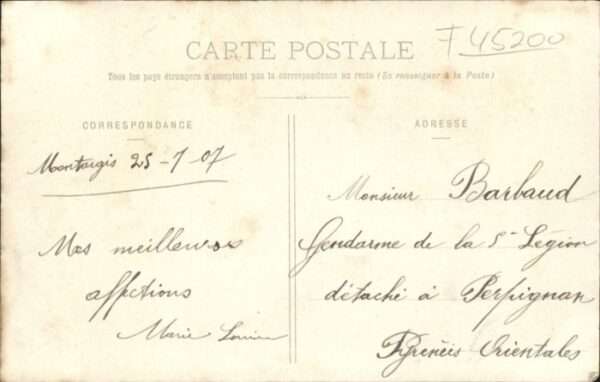 F 45200
CARTE POSTALE
Tous les pays étrangers n'acceptent pas la correspondance au recto (Se renseigner à la Poste)
CORRESPONDANCE
Montargis 25-7-07
Mes meilleures
affections
Marie Louise
ADRESSE
Monsieur Barbaud
Gendarme de la 5e Légion
détaché à Perpignan
Pyrénéés Orientales